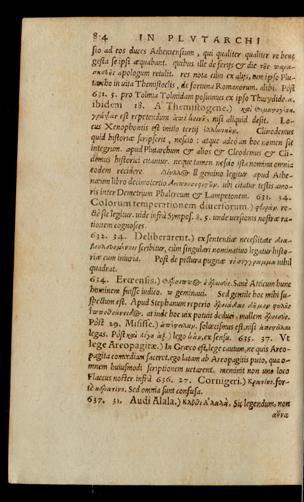 84 IN PLVTARCHI
sio ad eos duces Atheniensium, qui qualiter qualiter re bene
gesta se ipsi æquabant. quibus ille de festis & die
apologum retulit. res nota cùm ex alijs, tum ipso Plu-
tarcho in vita Themistoclis, de fortuna Romanorum. alibi. Post
631. 5. pro Tolmia Tolmidam posuimus ex ipso Thucydide. a.
ibidem 18. A' Themistogene.)
est repetendum nisi aliquid desit. Lo-
cus Xenophontis est initio tertij Clinodemus
quid historiæ scripserit, nescio: atque adeo an hoc nomen sit
integrum. apud Plutarchum & alios & Cleodemus & Cli-
demus historici citantur. neque tamen nescio ista nomina omnia
eodem recidere. ll gemino legitur apud Athe-
næum libro decimotertio ubi citatur testis amo-
ris inter Demetrium Phalereum & Lampetonem. 631. 34.
Colorum temperationem diuersorum.) re-
ctè sic legitur. vide infrà Sympos. 8. 5. unde versionis nostræ ra-
tionem cognosces.
632. 34. Deliberarent.) ex sententiæ necessitate
scribitur, cùm singulari nominatiuo legatur histo-
riæ cum iniuria. Post de pictura pugnæ nihil
quadrat.
634. Erœensis.) Sanè Atticum hunc
hominem fuisse iudico. w geminaui. Sed gentile hoc mihi su-
spectum est. Apud Stephanum reperio
at inde hoc uix potuit deduci. mallem
Pòst 29. Misisse.) solœcismus est, nisi
legas. Pòst 34. lego ex sensu. 635. 37. Vt
lege Areopagitæ.) In Græco est, lege cautum, ne quis Areo-
pagita comœdiam faceret. ego latum ab Areopagitis puto, qua o-
mnem huiusmodi scriptionem uetarent. meminit non uno loco
Flaccus noster infrà 636. 27. Cornigeri.) for-
tè Sed omnia sunt confusa.
637. 31. Audi Alala.) Sic legendum, non
αὖτα